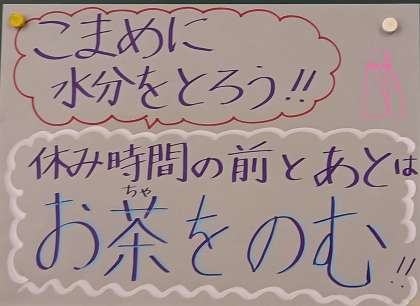 こまめに
水分をとろう!!
休み時間の前とあとは
お茶をのむ!!
ちゃ